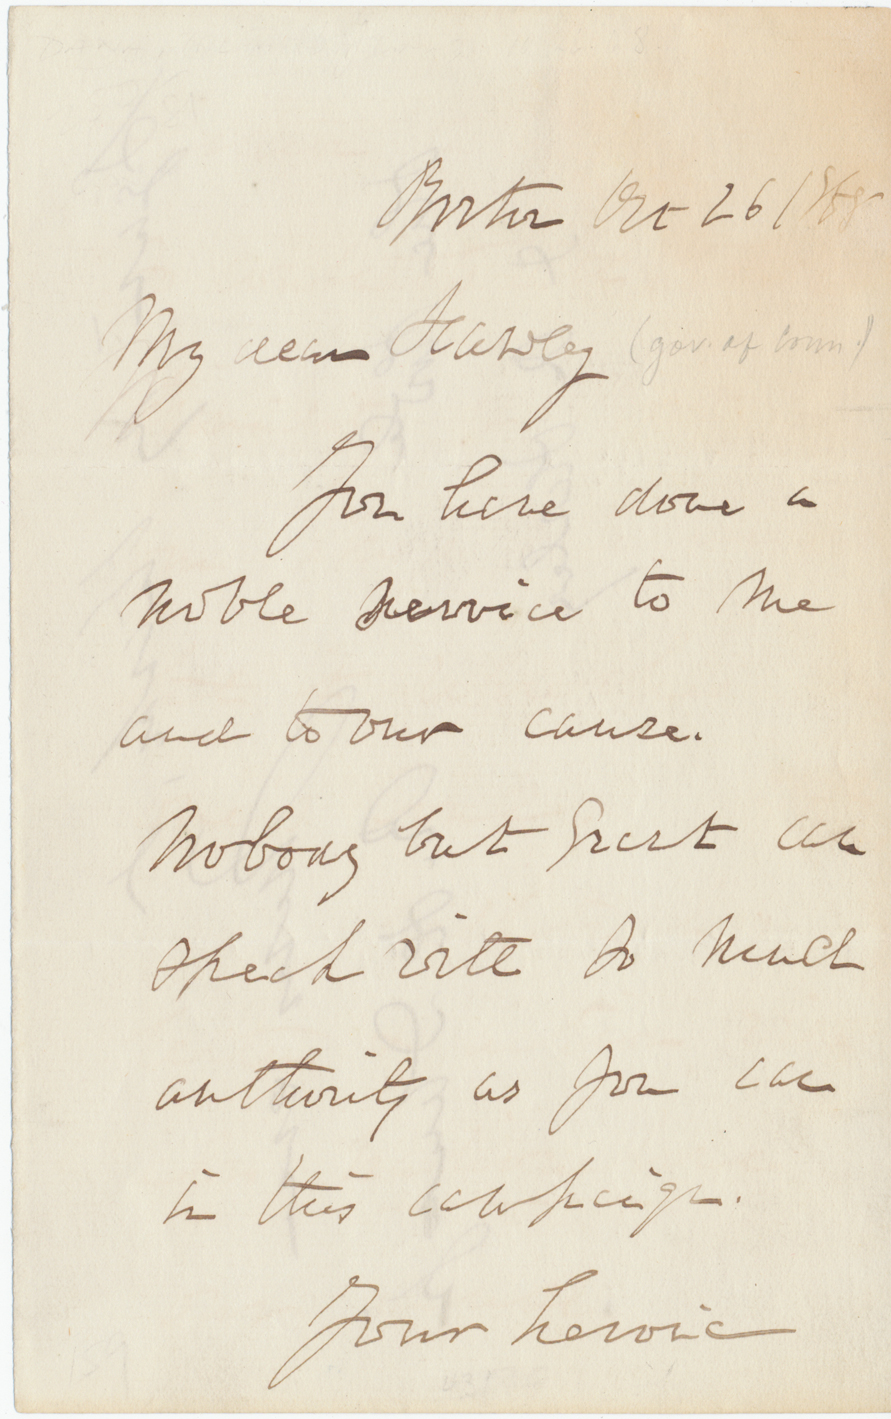 Boston Oct 26 / 868
My dear Hawley (gov. of Conn.)
You have done a
noble service to me
and to our cause.
Nobody but Grant can
speak with so much
authority as you can
in this campaign.
Your heroic